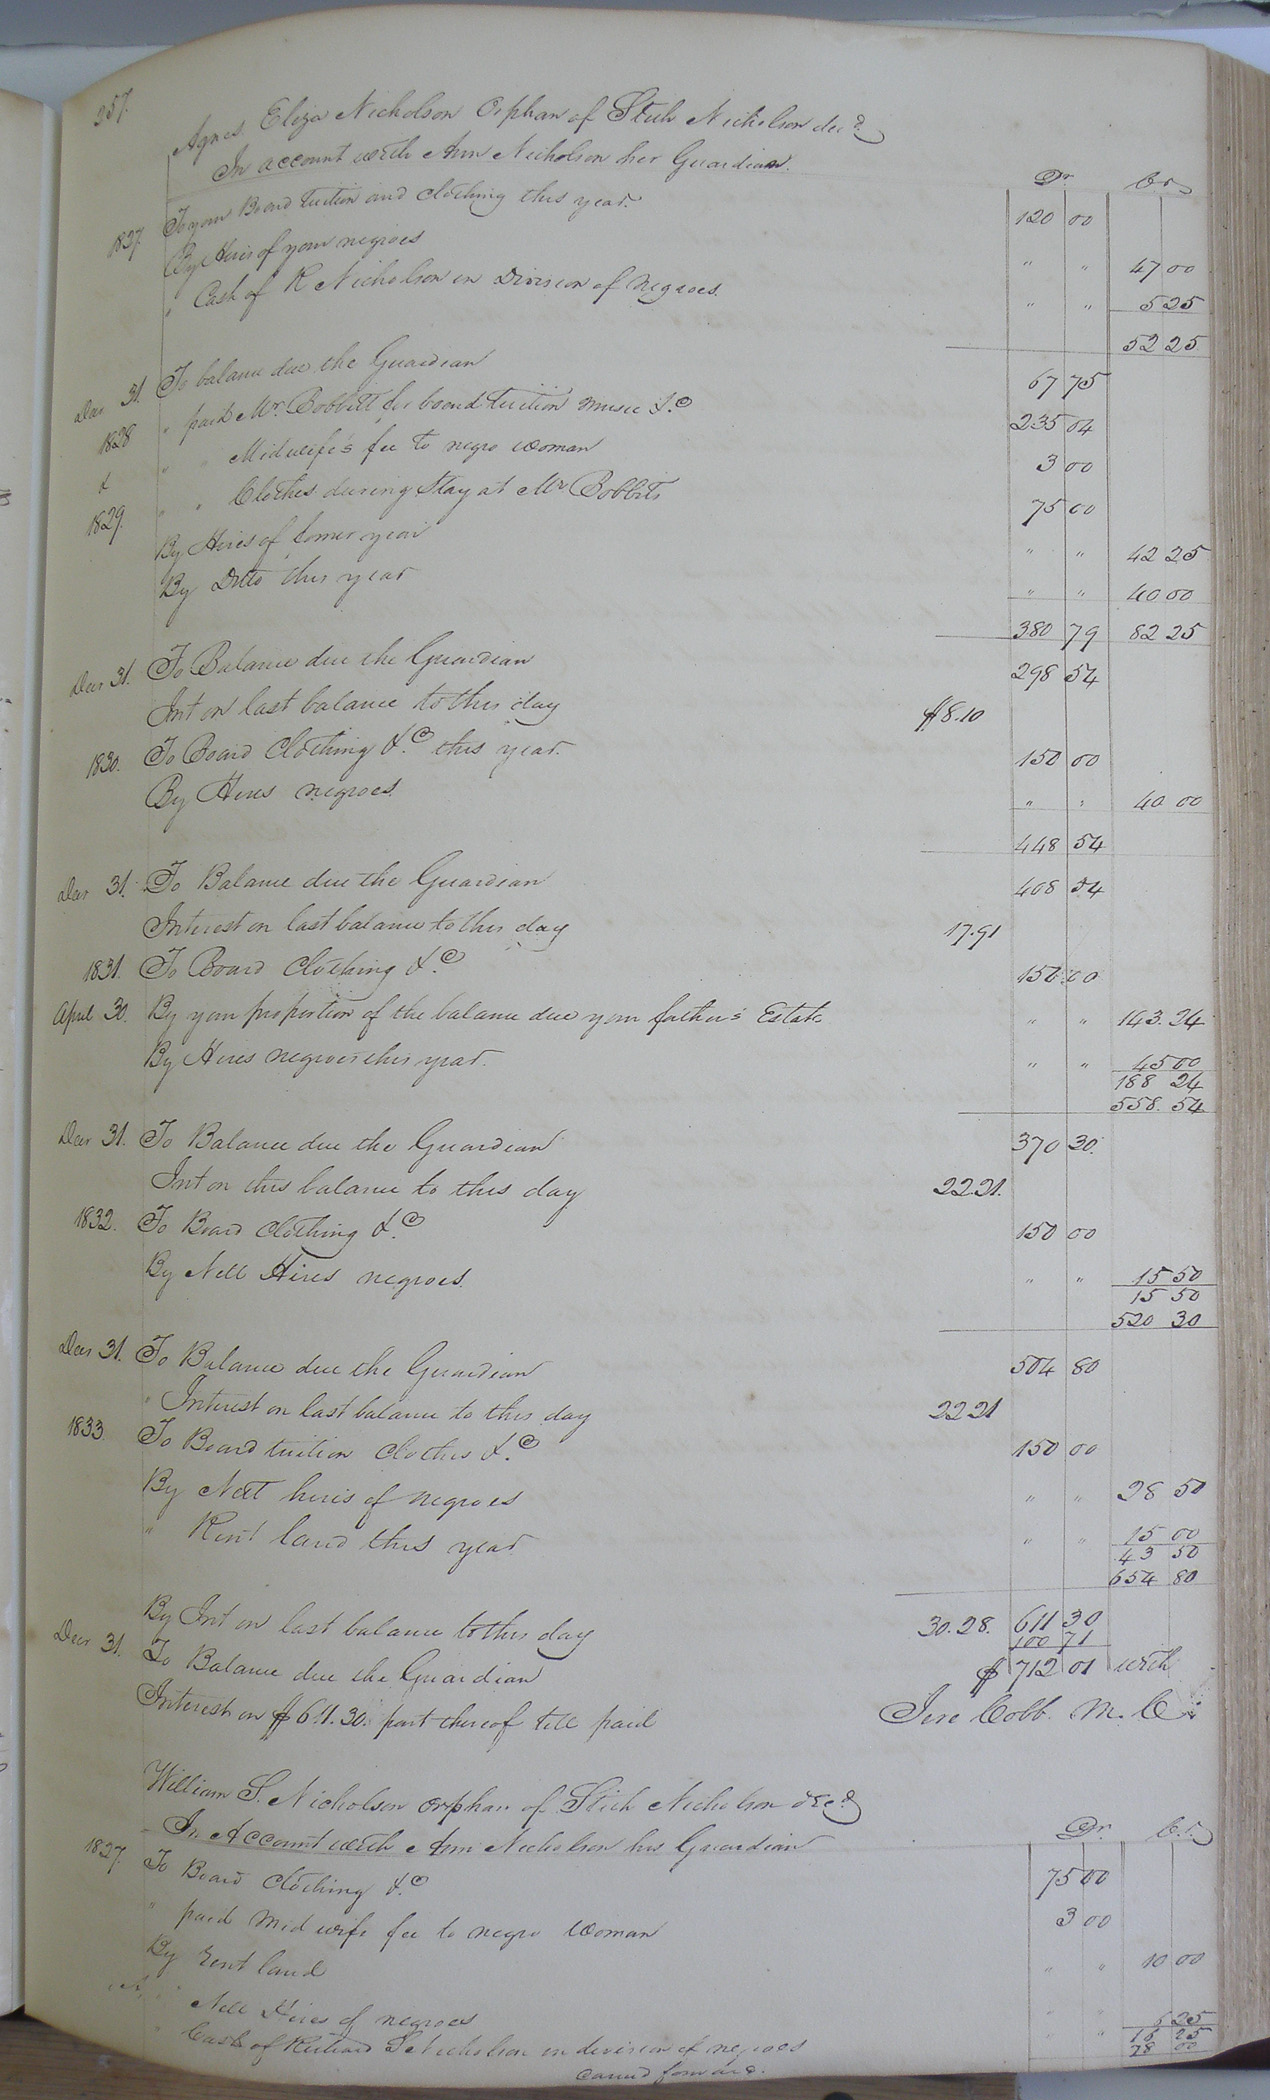 257.
Agnes Eliza Nicholson Orphan of Stith Nicholson decd
In account with Ann Nicholson her Guardian.
Dr Cr
1827. To your Board Tuition and Clothing this year. 120 00
By Hires of your negroes " " 47 00
" Cash of R Nicholson in Division of Negroes. " " 5 25
52 25
Decr 31. To balance due the Guardian 67 75
1828 " paid Mr. Bobbitt for board tuition music &c 235 04
& " " Midwife's fee to negro woman 3 00
1829. " " Clothes during Stay at Mr Bobbitts 75 00
By Hires of former year " " 42 25
By Ditto this year " " 40 00
380 79 82 25
Decr 31. To Balance due the Guardian 298 54
Int on last balance to this day $8.10
1830. To Board Clothing &c this year. 150 00
By Hires negroes. " " 40 00
448 54
Decr 31. To Balance due the Guardian 408 54
Interest on last balance to this day 17.91
1831. To Board Clothing &c 150 00
April 30. By your proportion of the balance due your father's Estate " " 143.24
By Hires negroes this year. " " 45 00
188 24
558.54
Decr 31. To Balance due the Guardian 370 30.
Int on this balance to this day 22.21.
1832. To Board Clothing &c 150 00
By Nett Hires negroes " " 15 50
15 50
520 30
Decr 31. To Balance due the Guardian 504 80
" Interest on last balance to this day 22 21
1833. To Board tuition Clothes &c 150 00
By Nett hires of negroes " " 28 50
" Rent land this year " " 15 00
43 50
654 80
By Int on last balance to this day 30.28. 611 30
100 71
Decr 31. To Balance due the Guardian $ 712 01 with
Interest on $611.30. part thereof till paid
Jere Cobb. M. C.
William S. Nicholson orphan of Stith Nicholson decd
In Account with Ann Nicholson his Guardian
Dr. Cr.
1827. To Board Clothing &c 75 00
" paid Midwife fee to negro Woman 3 00
By rent land " " 10 00
Nett Hires of negroes
Cash of Richard S Nicholson in division of negroes " " 6 25
16 25
78 00
carried forward.